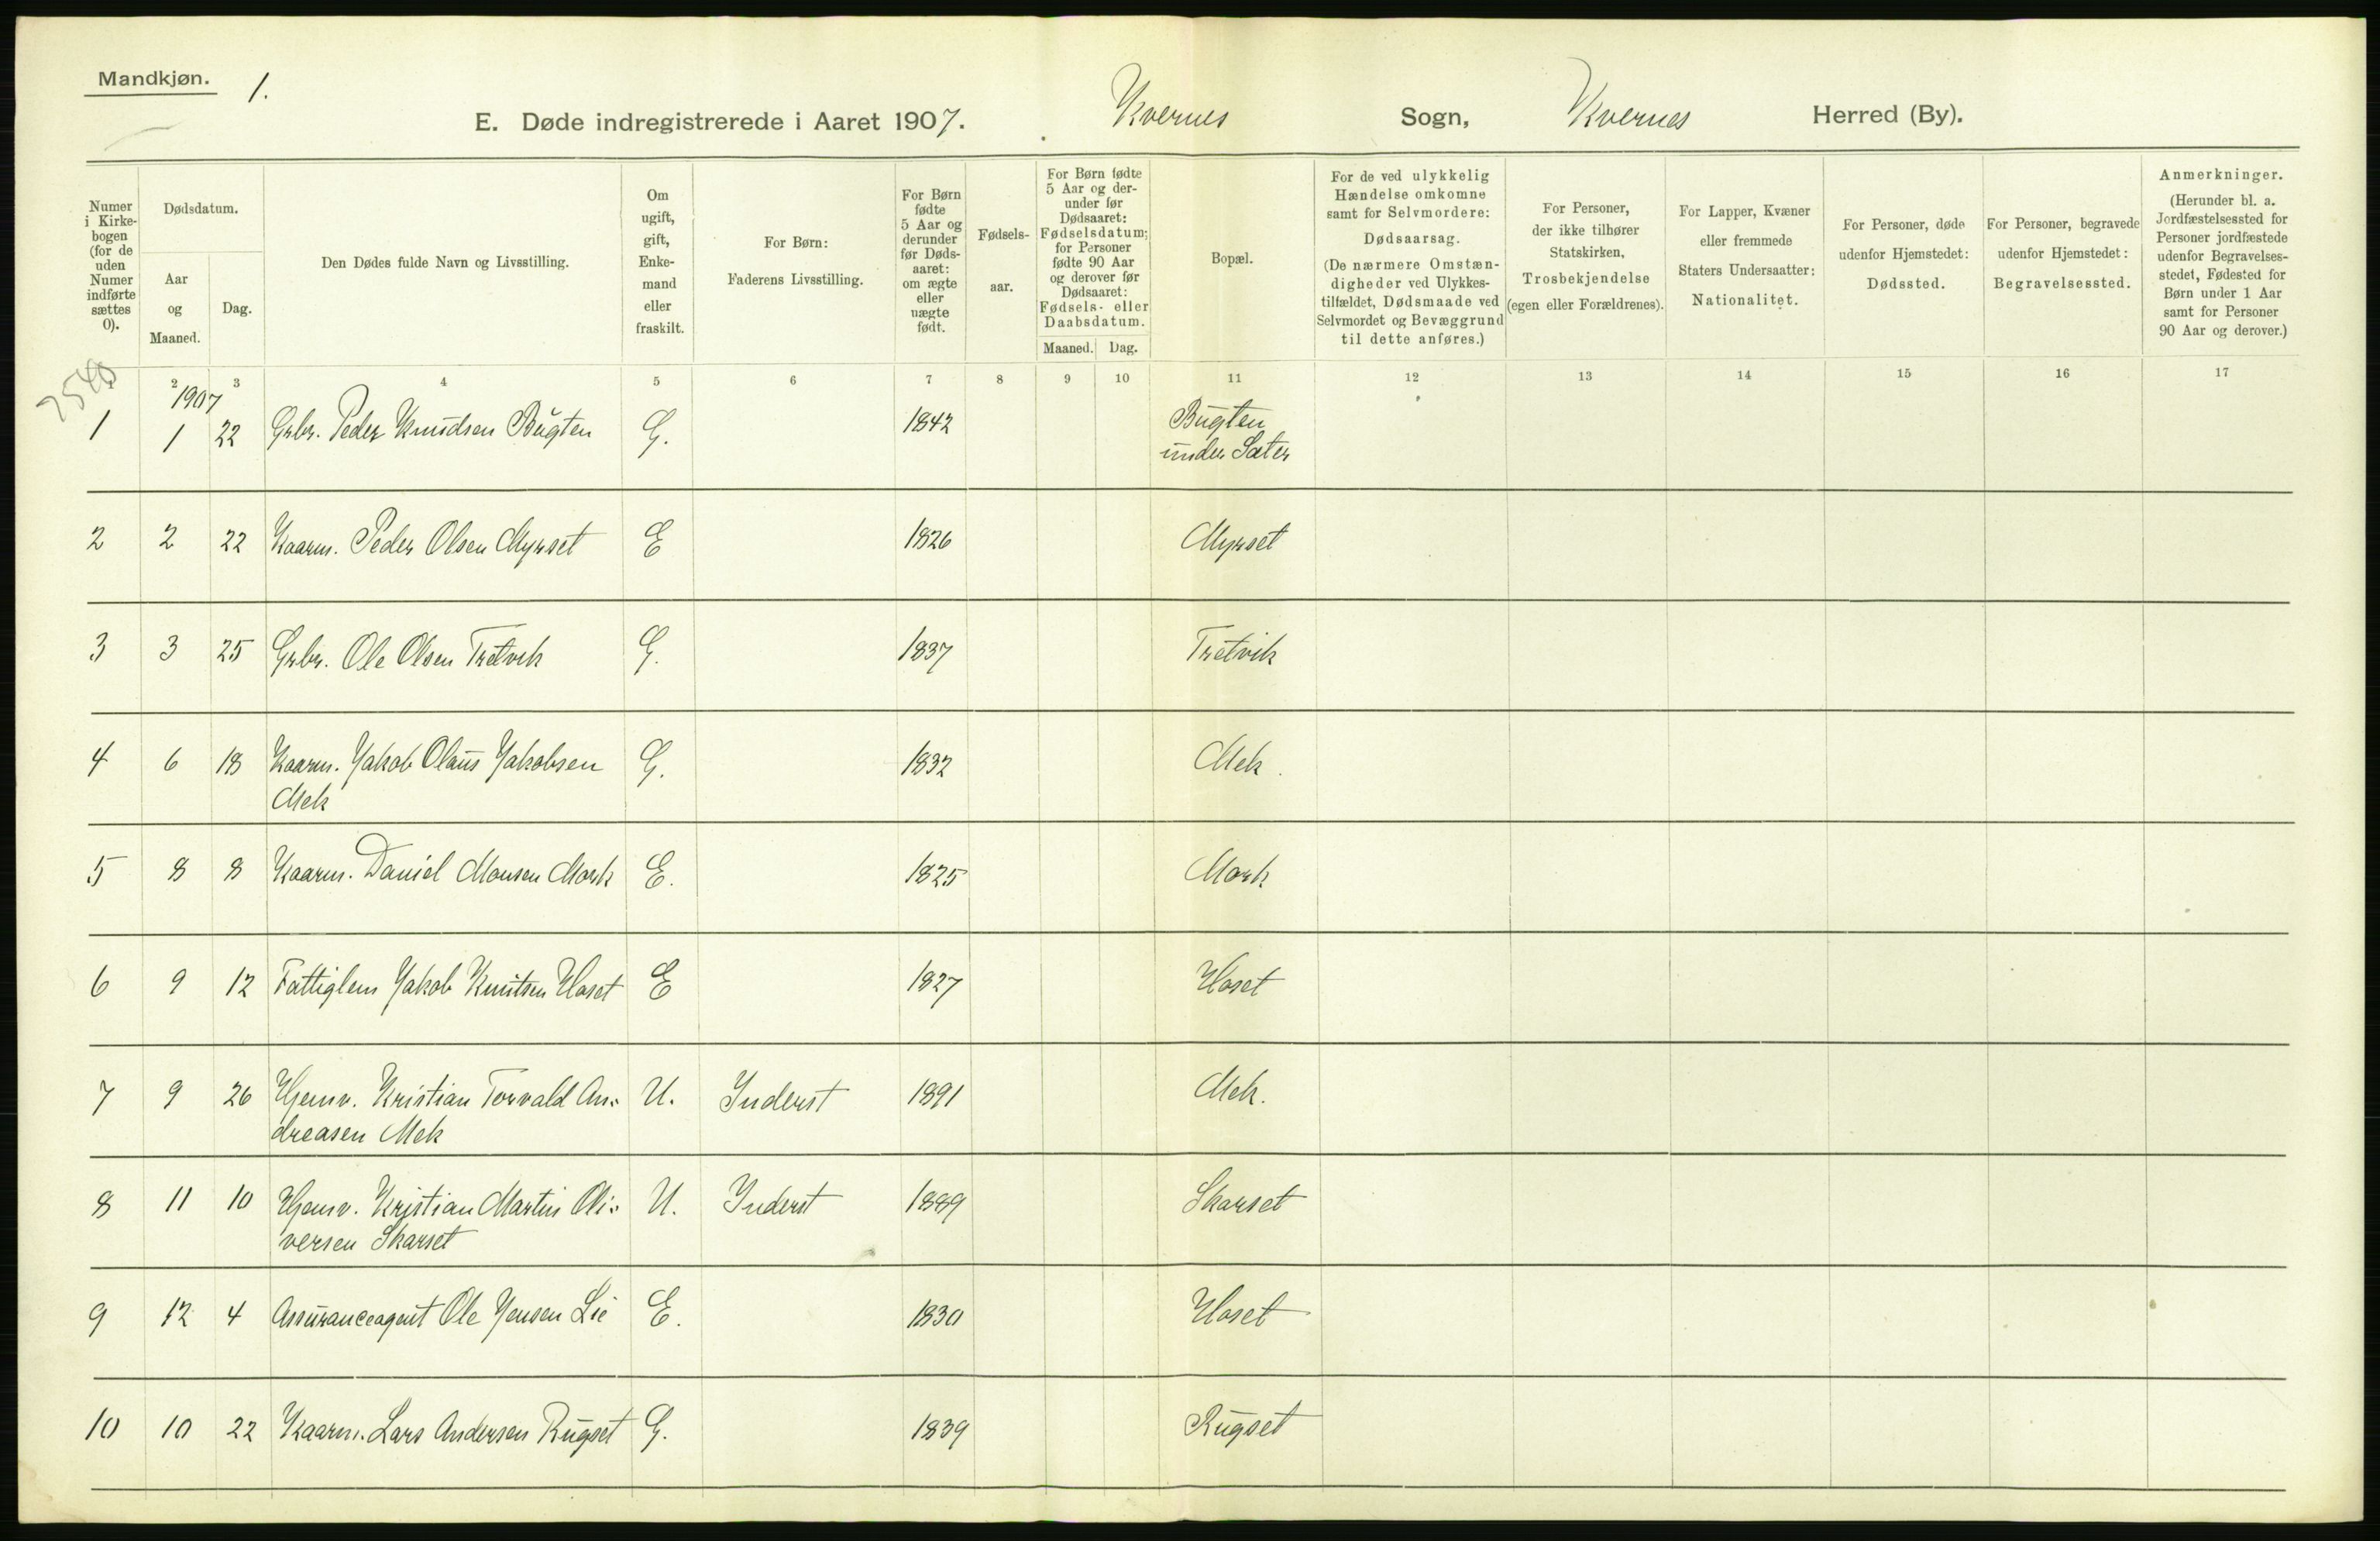 Mandkjøn.
1.
E. Døde indregistrerede i Aaret 1907. Kvernes Sogn, Kvernes Herred (By).
Numer i Kirkebogen (for de uden Numer indførte sættes 0).
Dødsdatum.
Aar og Maaned.
Dag.
Den Dødes fulde Navn og Livsstilling.
Om ugift, gift, Enkemand eller fraskilt.
For Børn: Faderens Livsstilling.
For Børn fødte 5 Aar og derunder før Dødsaaret: om ægte eller uægte født.
Fødselsaar.
For Børn fødte 5 Aar og derunder før Dødsaaret: Fødselsdatum; for Personer fødte 90 Aar og derover før Dødsaaret: Fødsels- eller Daabsdatum.
Maaned. Dag.
Bopæl.
For de ved ulykkelig Hændelse omkomne samt for Selvmordere: Dødsaarsag. (De nærmere Omstændigheder ved Ulykkestilfældet, Dødsmaade ved Selvmordet og Bevæggrund til dette anføres.)
For Personer, der ikke tilhører Statskirken, Trosbekjendelse (egen eller Forældrenes).
For Lapper, Kvæner eller fremmede Staters Undersaatter: Nationalitet.
For Personer, døde udenfor Hjemstedet: Dødssted.
For Personer, begravede udenfor Hjemstedet: Begravelsessted.
Anmerkninger. (Herunder bl. a. Jordfæstelsessted for Personer jordfæstede udenfor Begravelsesstedet, Fødested for Børn under 1 Aar samt for Personer 90 Aar og derover.)
1 2 3 4 5 6 7 8 9 10 11 12 13 14 15 16 17
1907
1 1 22 Grbr. Peder Knudsen Bugten G. 1842 Bugten
under Sæter
2 2 22 Kaarm. Peder Olsen Myrset E 1826 Myrset
3 3 25 Grbr. Ole Olsen Tretvik G. 1837 Tretvik
4 6 18 Kaarm. Jakob Olaus Jakobsen G. 1832 Mek.
Mek
5 8 8 Kaarm. Daniel Monsen Mork E. 1825 Mork
6 9 12 Fattiglem Jakob Knutsen Hoset E 1827 Hoset
7 9 26 Hjemv. Kristian Torvald An- U. Inderst 1891 Mek.
dreasen Mek
8 11 10 Hjemv. Kristian Martin Oli- U. Inderst 1889 Skarset
versen Skarset
9 12 4 Assuranceagent Ole Jensen Lie E. 1830 Hoset
10 10 22 Kaarm. Lars Andersen Rugset G. 1839 Rugset